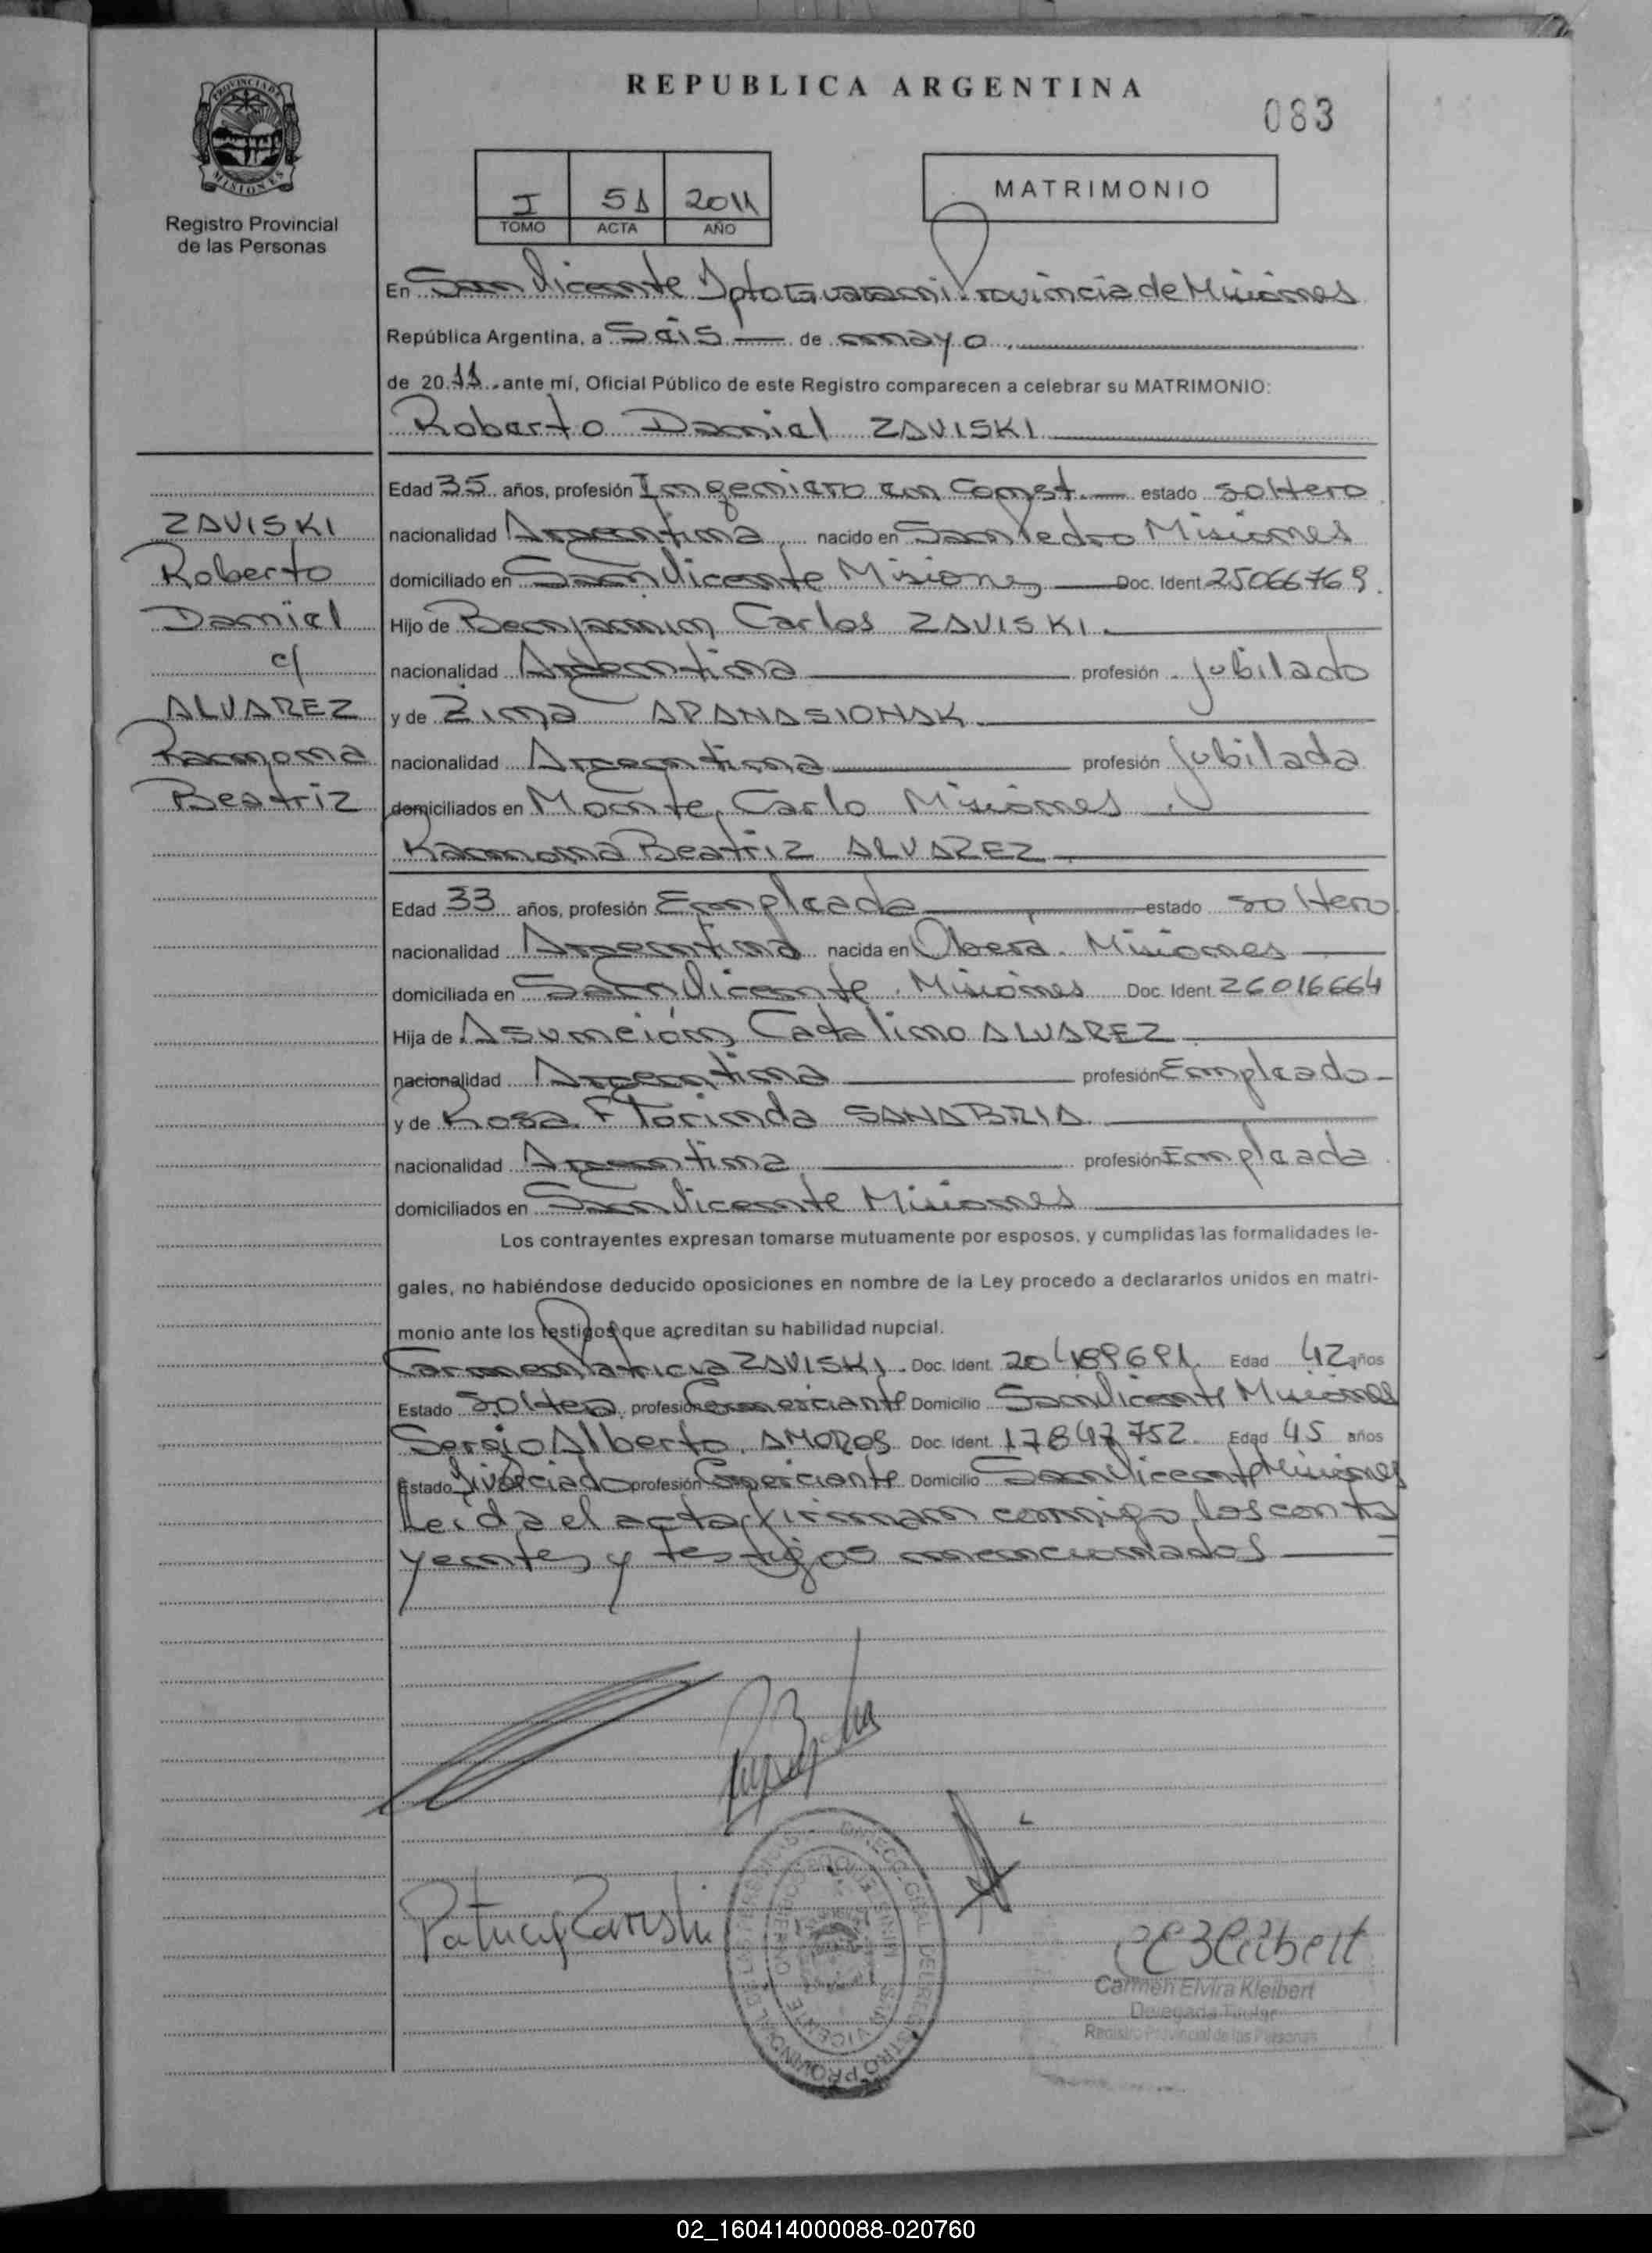 REPUBLICA ARGENTINA
083
PROVINCIA DE
MISIONES
Registro Provincial
de las Personas
I 51 2011
TOMO ACTA AÑO
MATRIMONIO
En San Vicente Dpto Guarani Provincia de Misiones
República Argentina, a Seis de mayo
de 2011 ante mí, Oficial Público de este Registro comparecen a celebrar su MATRIMONIO:
Roberto Daniel ZAVISKI
ZAVISKI
Roberto
Daniel
c/
ALVAREZ
Ramona
Beatriz
Edad 35 años, profesión Ingeniero en Const. estado soltero
nacionalidad Argentina nacido en San Pedro Misiones
domiciliado en San Vicente Misiones Doc. Ident. 25066769
Hijo de Benjamin Carlos ZAVISKI
nacionalidad Argentina profesión jubilado
y de Zima APANASIONAK
nacionalidad Argentina profesión jubilada
domiciliados en Monte Carlo Misiones
Ramona Beatriz ALVAREZ
Edad 33 años, profesión Empleada estado soltero
nacionalidad Argentina nacida en Oberá. Misiones
domiciliada en San Vicente. Misiones Doc. Ident. 26016664
Hija de Asunción Catalino ALVAREZ
nacionalidad Argentina profesión Empleado
y de Rosa Florinda SANABRIA
nacionalidad Argentina profesión Empleada
domiciliados en San Vicente Misiones
Los contrayentes expresan tomarse mutuamente por esposos, y cumplidas las formalidades le-
gales, no habiéndose deducido oposiciones en nombre de la Ley procedo a declararlos unidos en matri-
monio ante los testigos que acreditan su habilidad nupcial.
Carmen Patricia ZAVISKI Doc. Ident. 20489691 Edad 42 años
Estado Soltera profesión Comerciante Domicilio San Vicente Misiones
Sergio Alberto AMOROS Doc. Ident. Edad 45 años
Estado Divorciado profesión Comerciante Domicilio San Vicente Misiones
Leida el acta firman conmigo los contra
yentes y testigos mencionados
Patricia Zaviski
Carmen Elvira Kleibert
Delegada Titular
Registro Provincial de las Personas
02_160414000088-020760